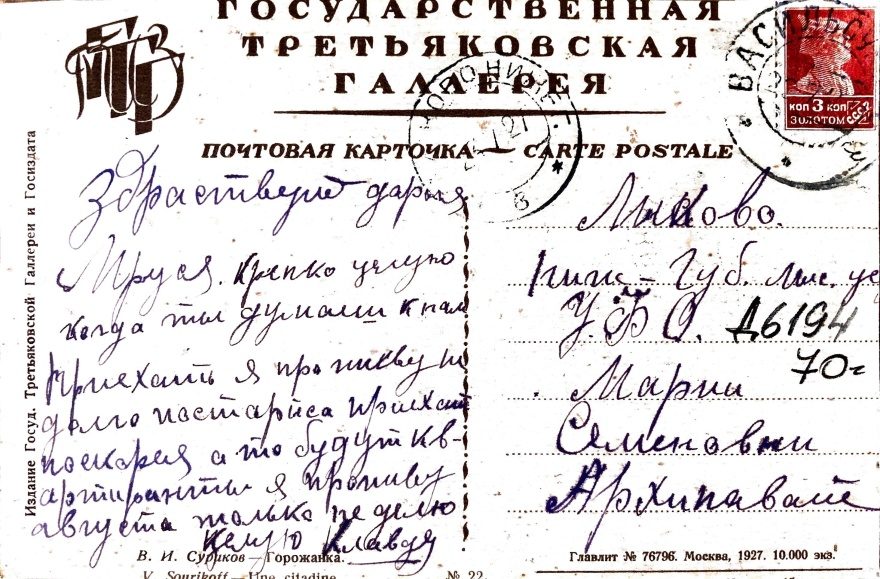 ГОСУДАРСТВЕННАЯ
ТРЕТЬЯКОВСКАЯ
ГАЛЛЕРЕЯ
ПОЧТОВАЯ КАРТОЧКА — CARTE POSTALE
ВАСИЛЬСУ
КОП 3 КОП
ЗОЛОТОМ
СССР
Издание Госуд. Третьяковской Галлереи и Госиздата
Здраствуй дарья
Маруся. Крепко целую
когда ты думаеш к нам
Приехать я проживу не
долго постариса приехат
поскорея а то будут кв-
артиранты я проживу
августа только неделю
целую Клавдя
Лысково.
Ниж - Губ. Лыс. уе
У.Ф О. Д6194
70-
Марии
Семеновни
Архипавай
В. И. Суриков — Горожанка.
V. Sourikoff — Une citadine
№ 22.
Главлит № 76796. Москва, 1927. 10.000 экз.